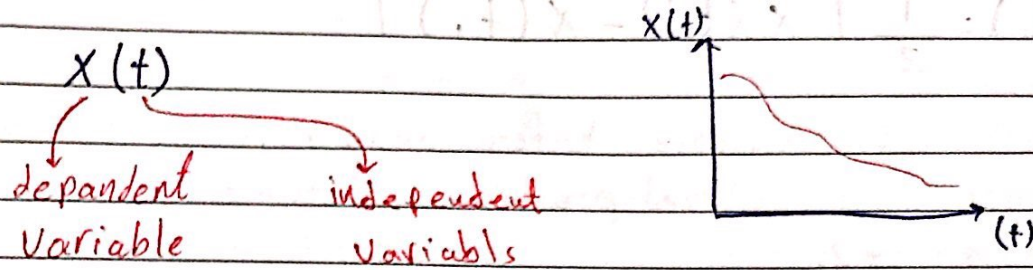 X(t)
X(t)
depandent
variable
independent
variabls
(t)